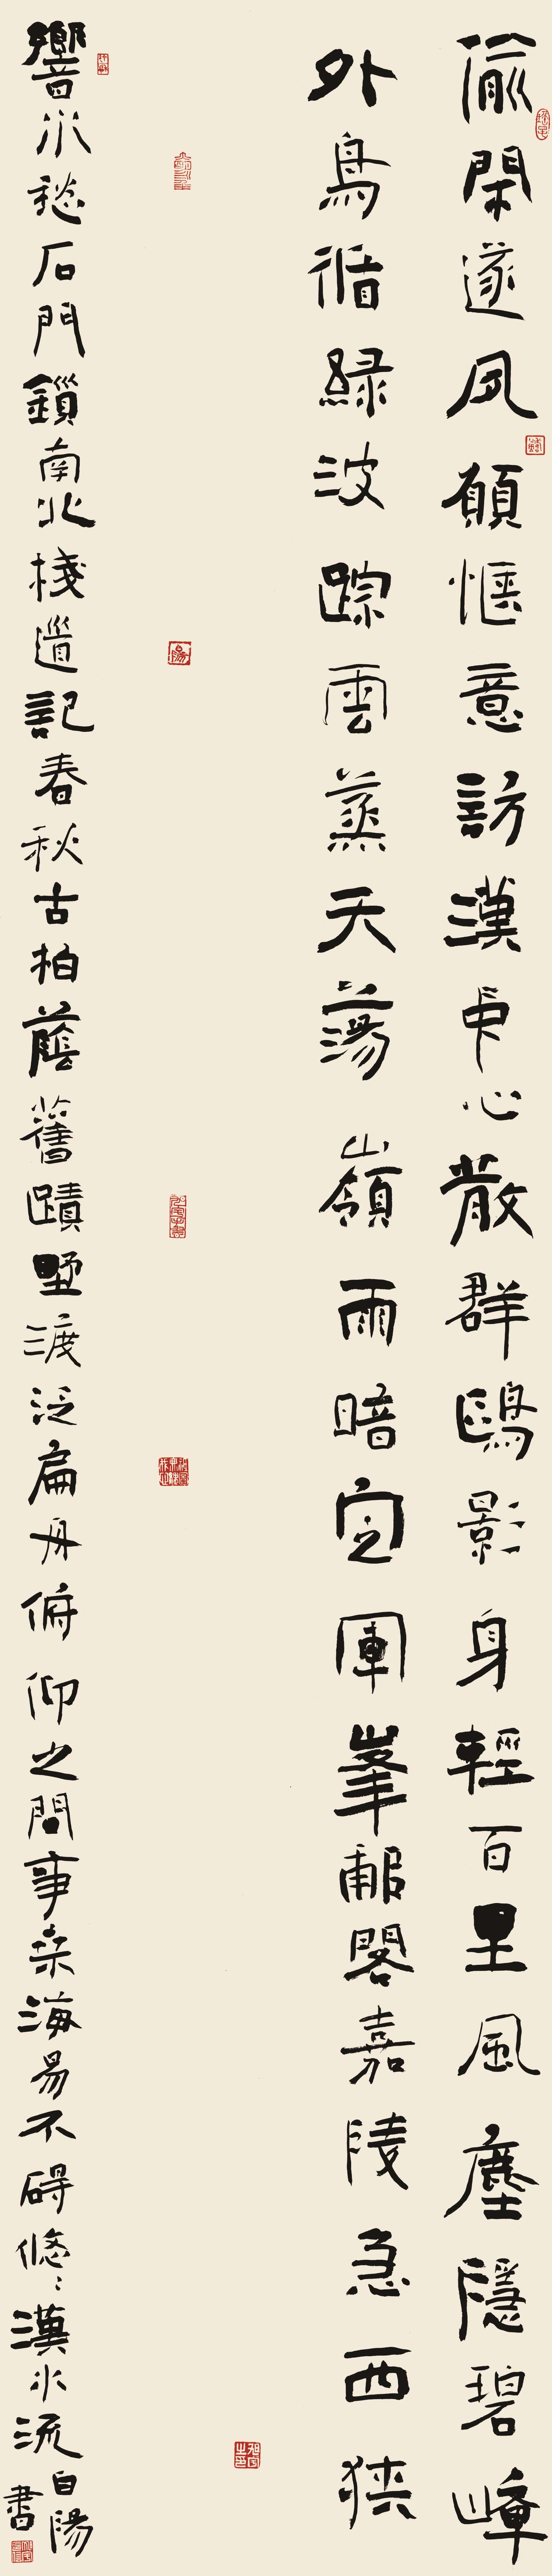 偷閑遂夙願愜意訪漢中心散群鷗影身輕百里風塵隱碧嶂
外鳥循綠波踪雲蒸天蕩嶺雨暗定軍峯郙閣嘉陵急西狹
響水愁石門鎖南北棧道記春秋古柏蔭舊蹟墅渡泛扁舟俯仰之間事桒海易不碍悠悠漢水流
白陽
書